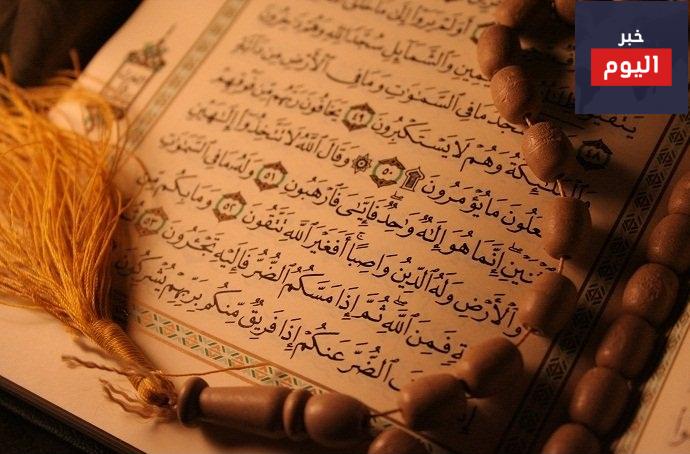 خبر
اليوم
أَوَلَمْ يَرَوْا۟ إِلَىٰ مَا
وَٱلشَّمَآئِلِ سُجَّدًا لِّلَّهِ وَهُمْ دَٰخِرُونَ
٤٨ يَسْجُدُ مَا فِى ٱلسَّمَٰوَٰتِ وَمَا فِى ٱلْأَرْضِ مِن دَآبَّةٍ
وَٱلْمَلَٰٓئِكَةُ وَهُمْ لَا يَسْتَكْبِرُونَ ٤٩ يَخَافُونَ رَبَّهُم مِّن فَوْقِهِمْ
يَفْعَلُونَ مَا يُؤْمَرُونَ ۩ ٥٠ ۞ وَقَالَ ٱللَّهُ لَا تَتَّخِذُوٓا۟ إِلَٰهَيْنِ
ٱثْنَيْنِ إِنَّمَا هُوَ إِلَٰهٌ وَٰحِدٌ فَإِيَّٰىَ فَٱرْهَبُونِ ٥١ وَلَهُۥ مَا فِى ٱلسَّمَٰوَٰتِ
وَٱلْأَرْضِ وَلَهُ ٱلدِّينُ وَاصِبًا أَفَغَيْرَ ٱللَّهِ تَتَّقُونَ ٥٢ وَمَا بِكُم مِّن
فَمِنَ ٱللَّهِ ثُمَّ إِذَا مَسَّكُمُ ٱلضُّرُّ فَإِلَيْهِ تَجْـَٔرُونَ ٥٣
ٱلضُّرَّ عَنكُمْ إِذَا فَرِيقٌ مِّنكُم بِرَبِّهِمْ يُشْرِكُونَ